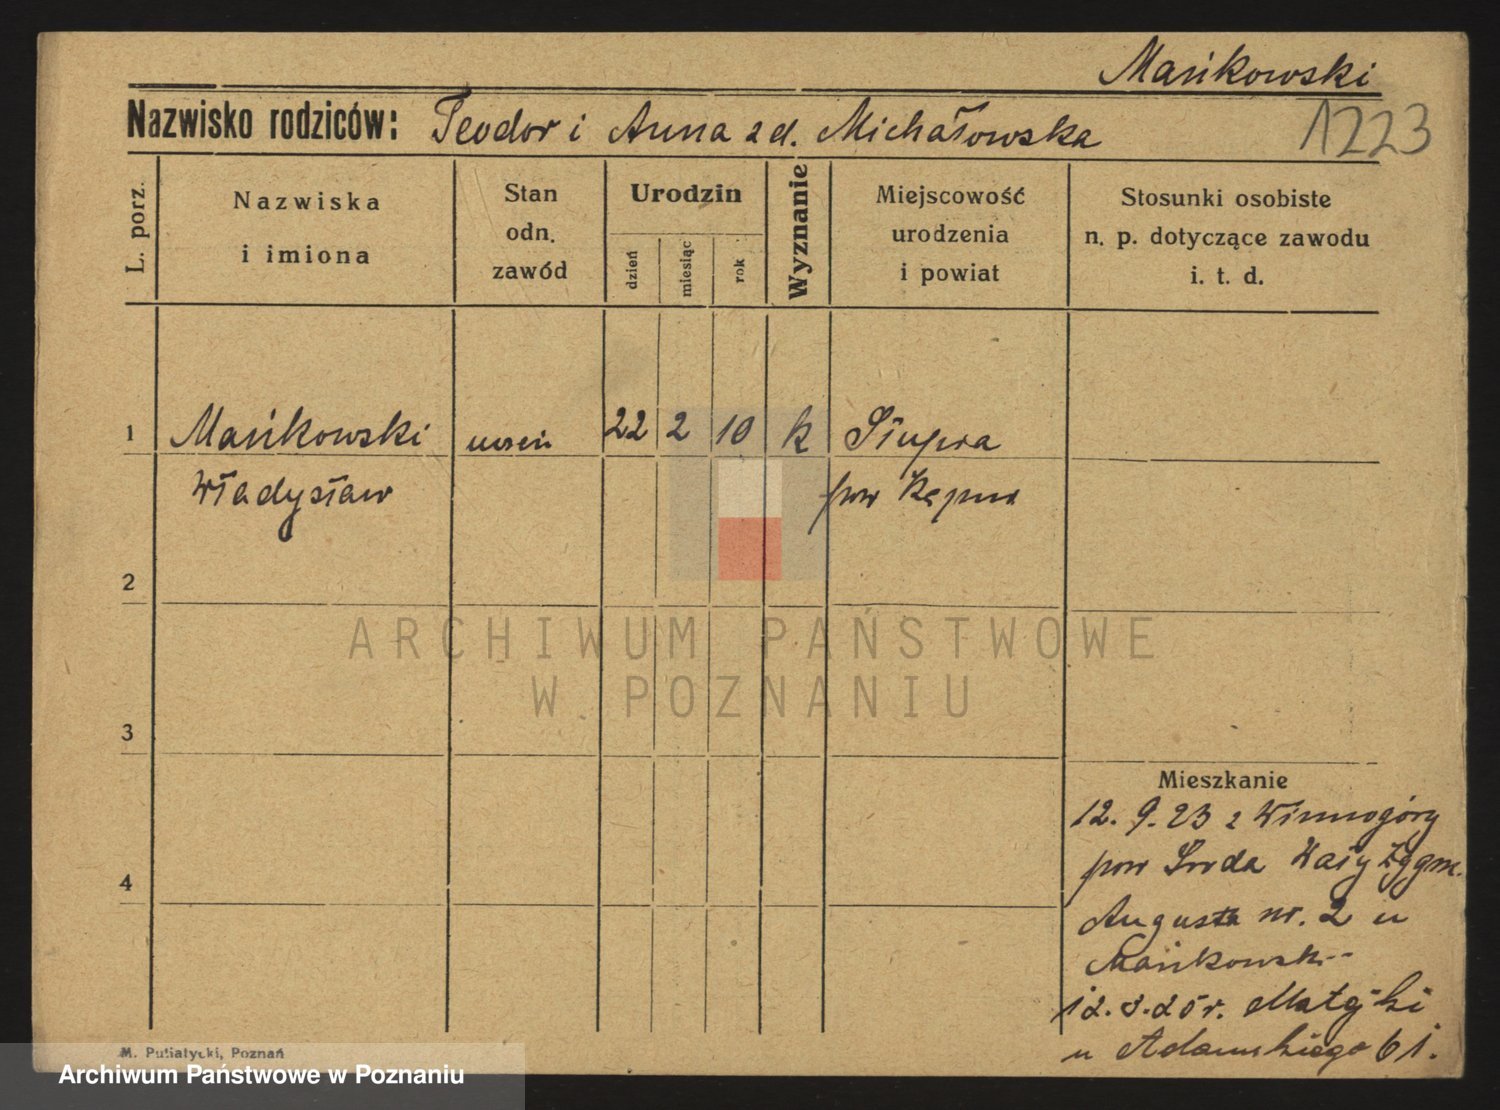 Mańkowski
Nazwisko rodziców: Teodor i Anna zd. Michałowska
1223
L. porz.
Nazwiska
i imiona
Stan
odn.
zawód
Urodzin
dzień
miesiąc
rok
Wyznanie
Miejscowość
urodzenia
i powiat
Stosunki osobiste
n. p. dotyczące zawodu
i. t. d.
1 Mańkowski uczeń 22 2 10 k Słupia
Władysław pow Kępno
2
3
4
ARCHIWUM PAŃSTWOWE
W POZNANIU
Mieszkanie
12. 9. 23 z Winnogóry
pow Środa Wały Zygm.
Augusta nr. 2 u
Mańkowski
12. 3. 25 r. Matejki
u Adamskiego 61.
M. Putiatycki, Poznań
Archiwum Państwowe w Poznaniu